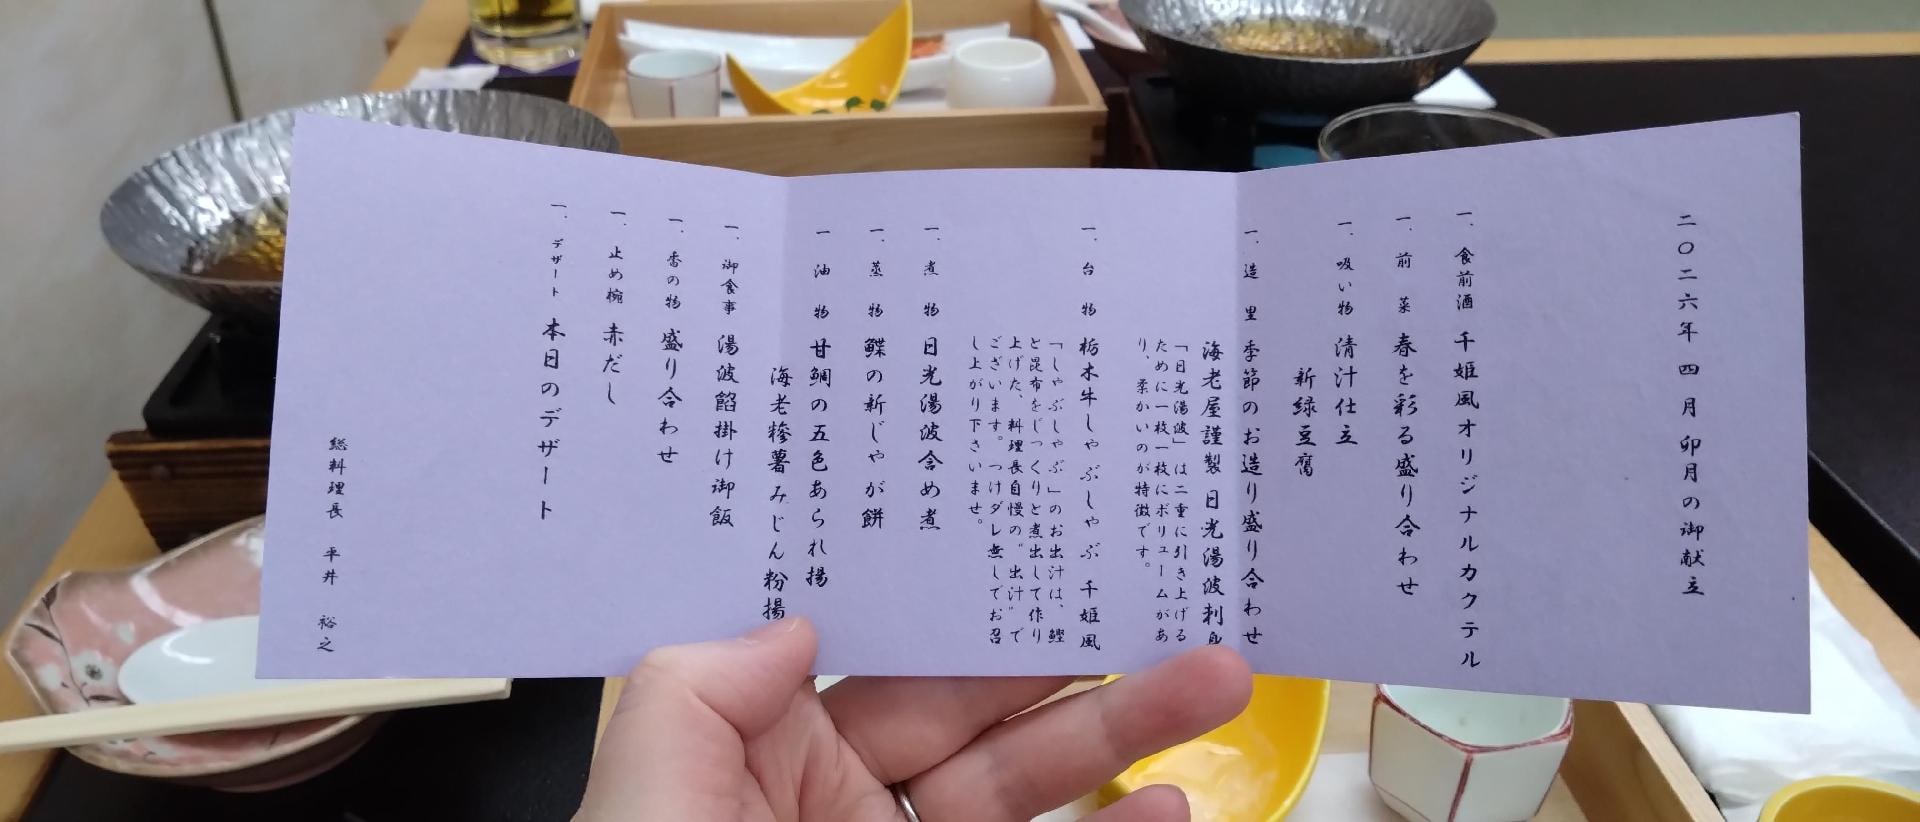 二〇二六年 四月 卯月の御献立
一、食前酒 千姫風オリジナルカクテル
一、前 菜 春を彩る盛り合わせ
一、吸い物 清汁仕立
新緑豆腐
一、造 里 季節のお造り盛り合わせ
海老屋謹製 日光湯波刺身
「日光湯波」は二重に引き上げる
ために一枚一枚にボリュームがあ
り、柔かいのが特徴です。
一、台 物 栃木牛しゃぶしゃぶ 千姫風
「しゃぶしゃぶ」のお出汁は、鰹
と昆布をじっくりと煮出して作り
上げた、料理長自慢の“出汁”で
ございます。つけダレ無しでお召
し上がり下さいませ。
一、煮 物 日光湯波含め煮
一、蒸 物 鰈の新じゃが餅
一 油 物 甘鯛の五色あられ揚
海老糝薯みじん粉揚
一、御食事 湯波餡掛け御飯
一、香の物 盛り合わせ
一、止め椀 赤だし
一、デザート 本日のデザート
総料理長 平井 裕之